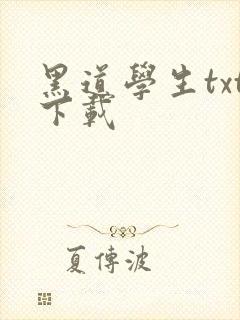 黑道學生txt
下載
夏傳波